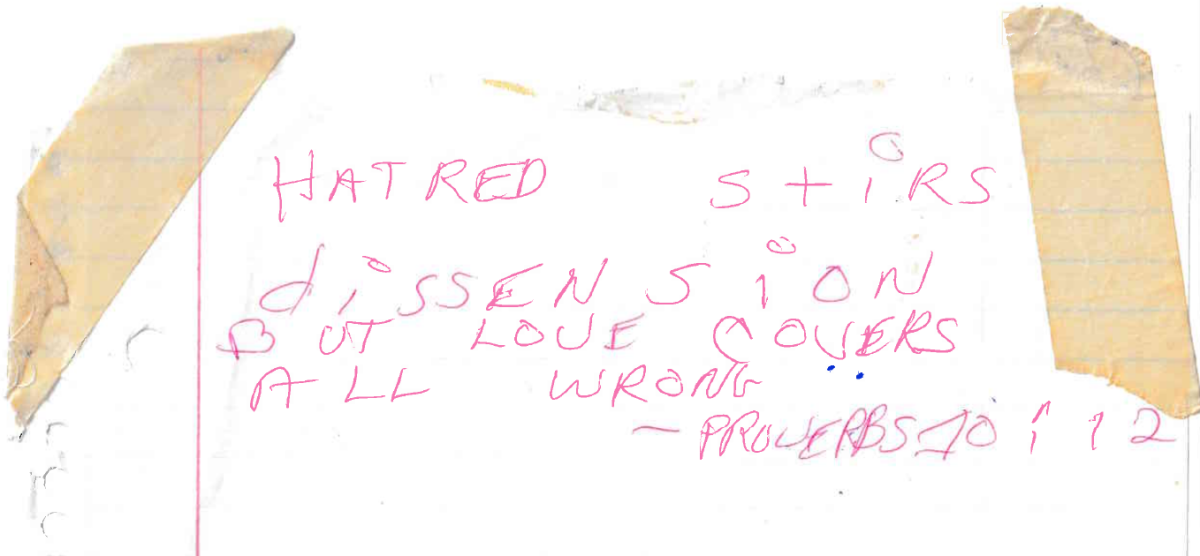 HATRED STiRS
diSSENSiON
BUT LOVE COVERS
ALL WRONG
- PROVERBS 10:12